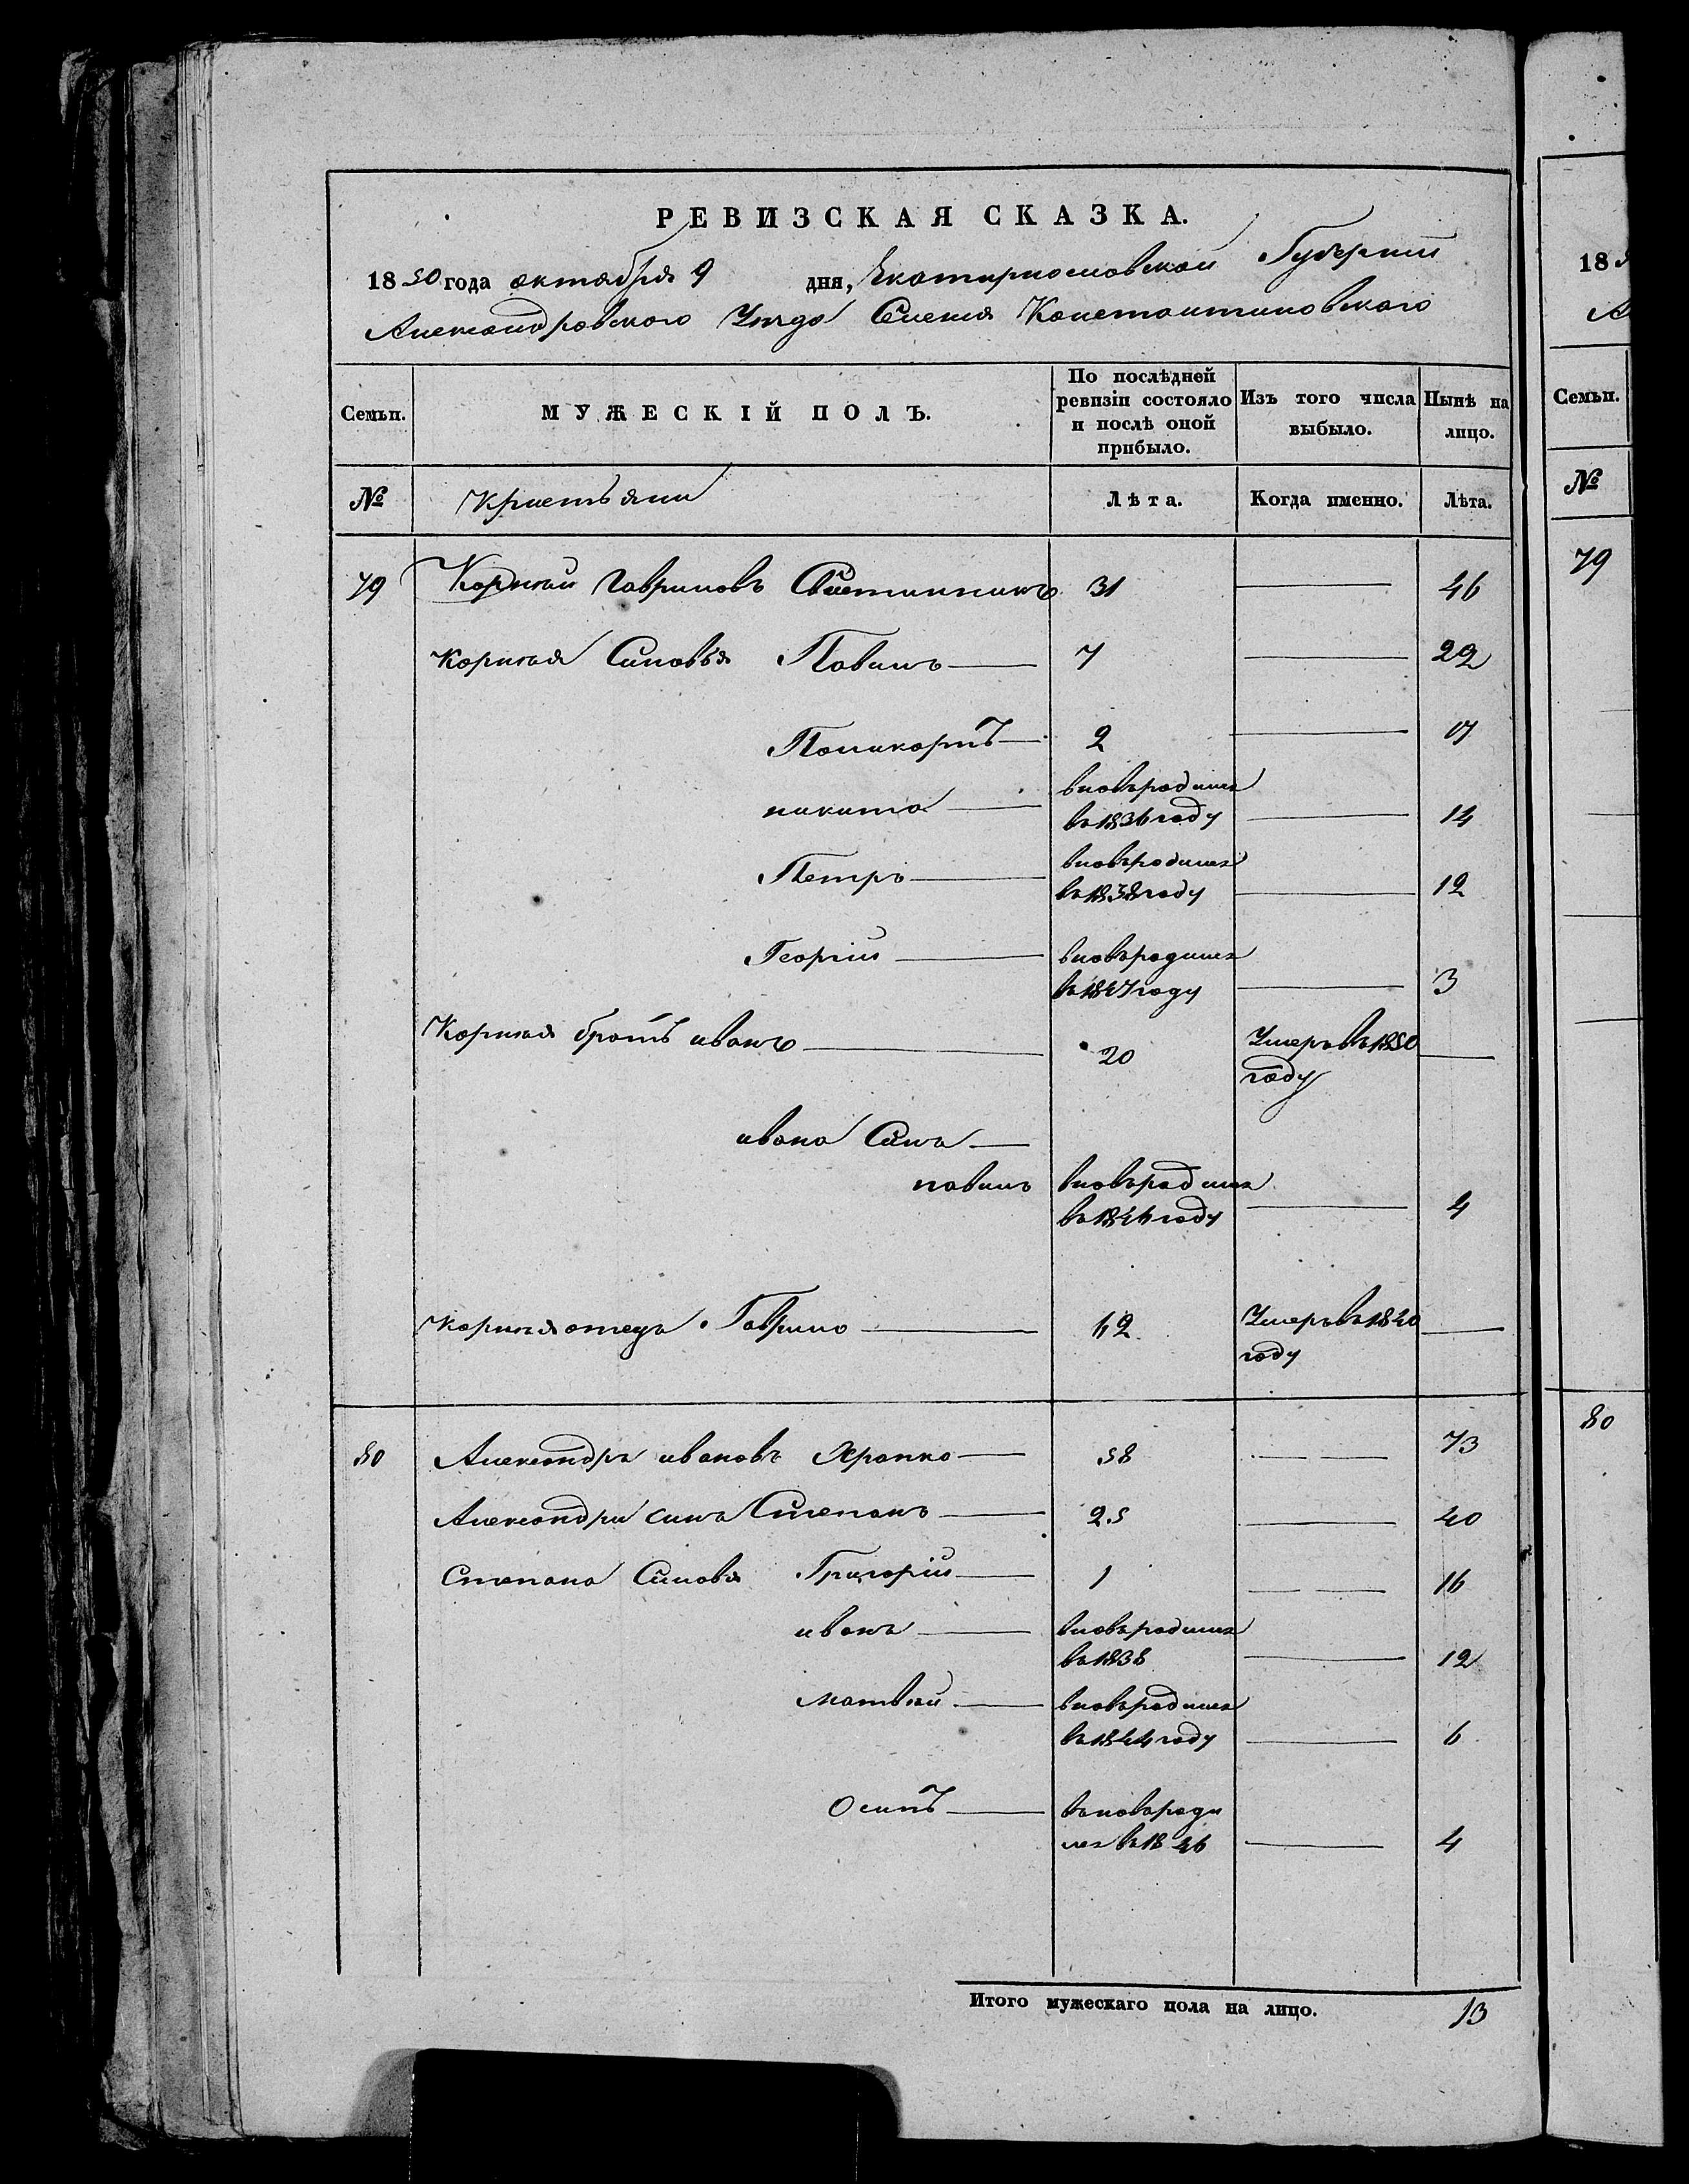 РЕВИЗСКАЯ СКАЗКА.
1850 года октября 9 дня, Екатеринославской Губернии
Александровского Уезда Селения Константиновского
Семьи. МУЖЕСКІЙ ПОЛЪ. По послѣдней ревизіи состояло и послѣ оной прибыло. Изъ того числа выбыло. Нынѣ на лицо.
№ Крестьяни Лѣта. Когда именно. Лѣта.
79 Корнѣй Гавриловъ 31 46
Корнѣя Синовья Павилъ 7 22
Поликарпъ 2 17
никита вновьродился
въ 1836 году 14
Петръ вновьродился
въ 1838 году 12
Георгій вновьродился
въ 1847 году 3
Корнѣя братъ иванъ 20 Умеръ въ 1850
году
ивана Синъ
павилъ вновьродился
въ 1846 году 4
Корнѣя отецъ Гаврило 62 Умеръ въ 1840
году
80 Александръ ивановъ Храпко 58 73
Александра синъ Степанъ 25 40
Степана Синовя Григорій 1 16
иванъ вновьродился
въ 1838 12
Матвѣй вновьродился
въ 1844 году 6
Осипъ вьновьроди
лся въ 1846 4
Итого мужескаго пола на лицо. 13
18
Семьи.
№
79
80